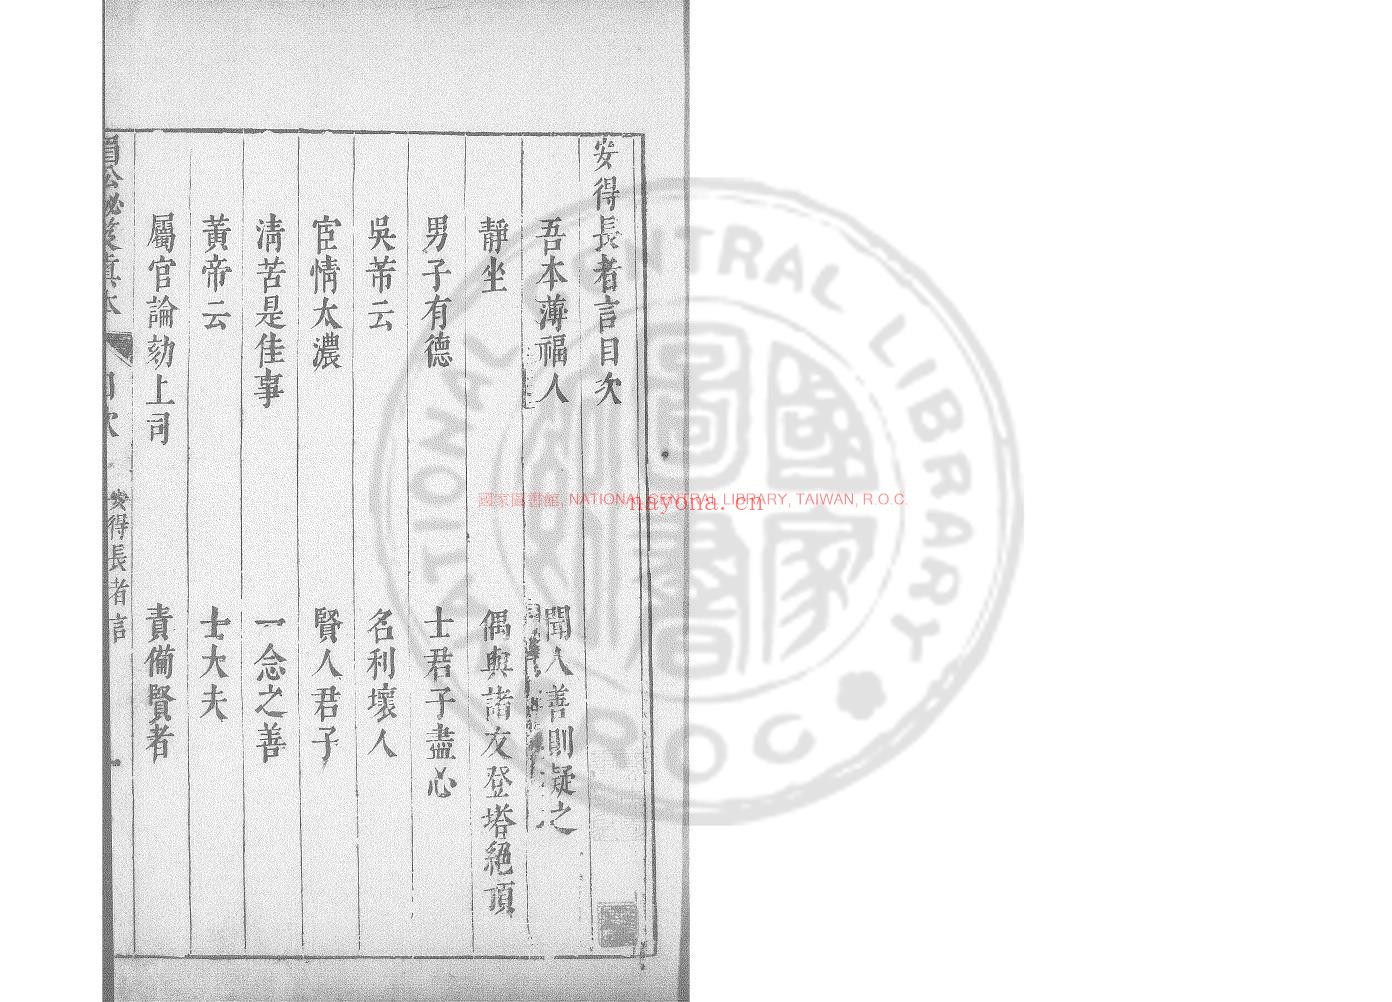 安得長者言目次
吾本薄福人　聞人善則疑之
靜坐　偶與諸友登塔絕頂
男子有德　士君子盡心
吳芾云　名利壞人
宦情太濃　賢人君子
清苦是佳事　一念之善
黃帝云　士大夫
屬官論劾上司　責備賢者
眉公秘笈真本　目次　安得長者言　一
國家圖書館, NATIONAL CENTRAL LIBRARY, TAIWAN, R.O.C.
nayona.cn
NATIONAL CENTRAL LIBRARY
R O C
國家圖書館